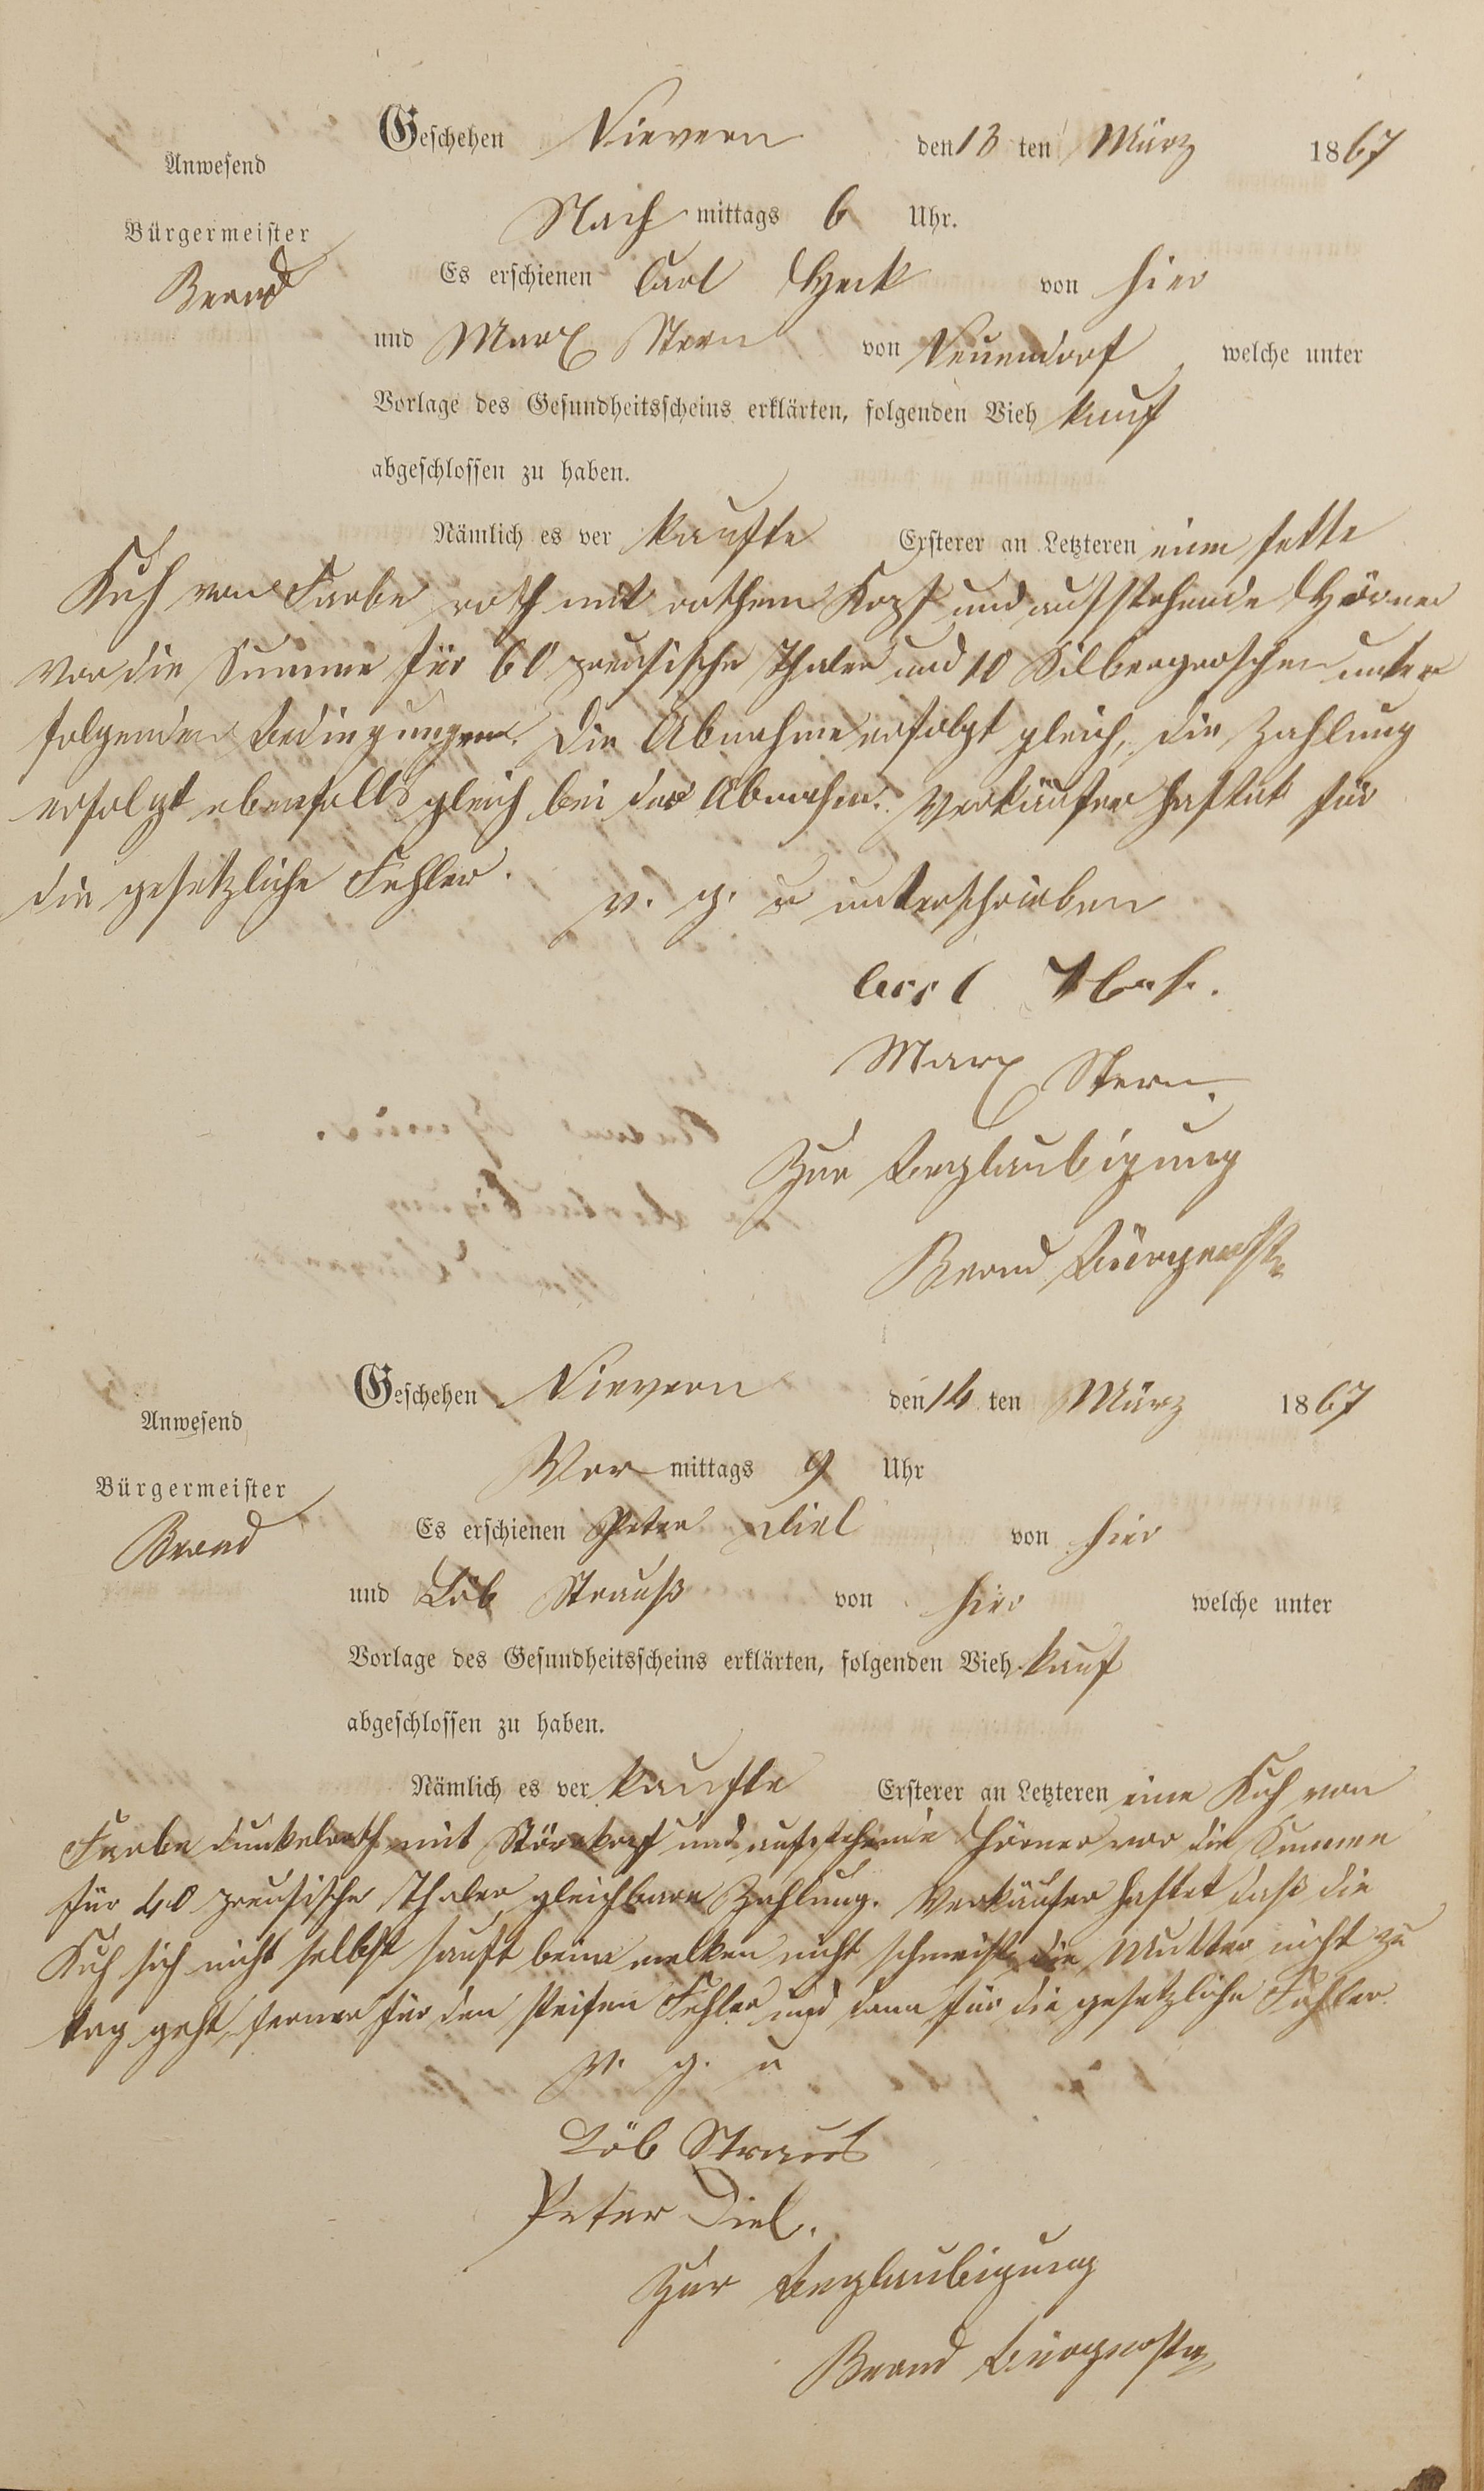 Geschehen Nievern den 13 ten März 1867
Anwesend
Nach mittags 6 Uhr.
Bürgermeister
Es erschienen Carl Heck von hier
Bernd
und Marx Stern von Neuendorf, welche unter
Vorlage des Gesundheitsscheins erklärten, folgenden Vieh kauf
abgeschlossen zu haben.
Nämlich es ver kaufte Ersterer an Letzteren eine fette
Kuh von Farbe roth mit rothem Kopf und aufstehende Hörner
vor die Summe für 60 preusische Thaler und 10 Silbergroschen unter
folgenden Bedingungen. Die Abnahme erfolgt gleich, die Zahlung
erfolgt ebenfalls gleich bei der Abnahme. Verkäufer haftet für
die gesetzliche Fehler.
v. g. u unterschrieben
Carl
Marx Stern.
Zur Beglaubigung
Bernd Bürgermstr
Geschehen Nievern den 14 ten März 1867
Anwesend
Vor mittags 9 Uhr
Bürgermeister
Es erschienen Peter Diel von hier
Bernd
und Löb Strauß von hier welche unter
Vorlage des Gesundheitsscheins erklärten, folgenden Vieh kauf
abgeschlossen zu haben.
Nämlich es ver kaufte Ersterer an Letzteren eine Kuh von
Farbe dunkelroth mit und aufstehende Hörner vor die Summe
für 40 preusische Thaler, gleichbare Zahlung. Verkäufer haftet daß die
Kuh sich nicht selbst sauft beim melken nicht schmeist, die Mutter nicht zu
tag geht, ferner für den steifen Fehler und dann für die gesetzliche Fehler.
v. g. u
Löb Straus
Peter Diel.
Zur Beglaubigung
Bernd Bürgermstr